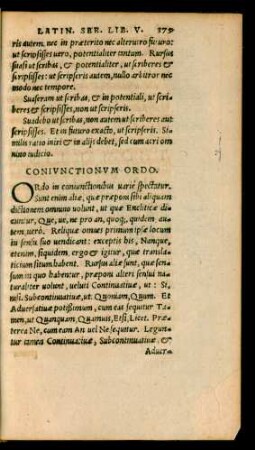 LATIN. SER. LIB. V. 179
ris autem, nec in præterito nec alterutro futuro:
ut scripsisses uero, potentialiter tantum. Rursus
suasi ut scribas, & potentialiter, ut scriberes &
scripsisses: ut scripseris autem, nullo arbitror nec
modo nec tempore.
Suaseram ut scribas, & in potentiali, ut scri
beres & scripsisses, non ut scripseris.
Suadebo ut scribas, non autem ut scriberes aut
scripsisses. Et in futuro exacto, ut scripseris. Si-
milis ratio iniri & in alijs debet, sed cum acri om
nino iudicio.
CONIVNCTIONVM ORDO.
ORdo in coniunctionibus uarie spectatur.
Sunt enim aliæ, quæ præponi sibi aliquam
dictionem omnino uolunt, ut quæ Encliticæ di
cuntur, Que, ue, ne pro an, quoq;, quidem, au-
tem, uerò. Reliquæ omnes primum ipsæ locum
in sensu suo uendicant: exceptis his, Nanque,
etenim, siquidem, ergo & igitur, quæ transla-
ticium situm habent. Rursus aliæ sunt, quæ sen-
sum in quo habentur, præponi alteri sensui na-
turaliter uolunt, ueluti Continuatiuæ, ut: Si,
nisi. Subcontinuatiuæ, ut Quoniam, Quum. Et
Aduersatiuæ potissimum, cum eas sequitur Ta-
men, ut Quanquam, Quamuis, Etsi, Licet. Præ-
terea Ne, cum eam An uel Ne sequitur. Legun-
tur tamen Continuatiuæ, Subcontinuatiuæ, &
Aduer-